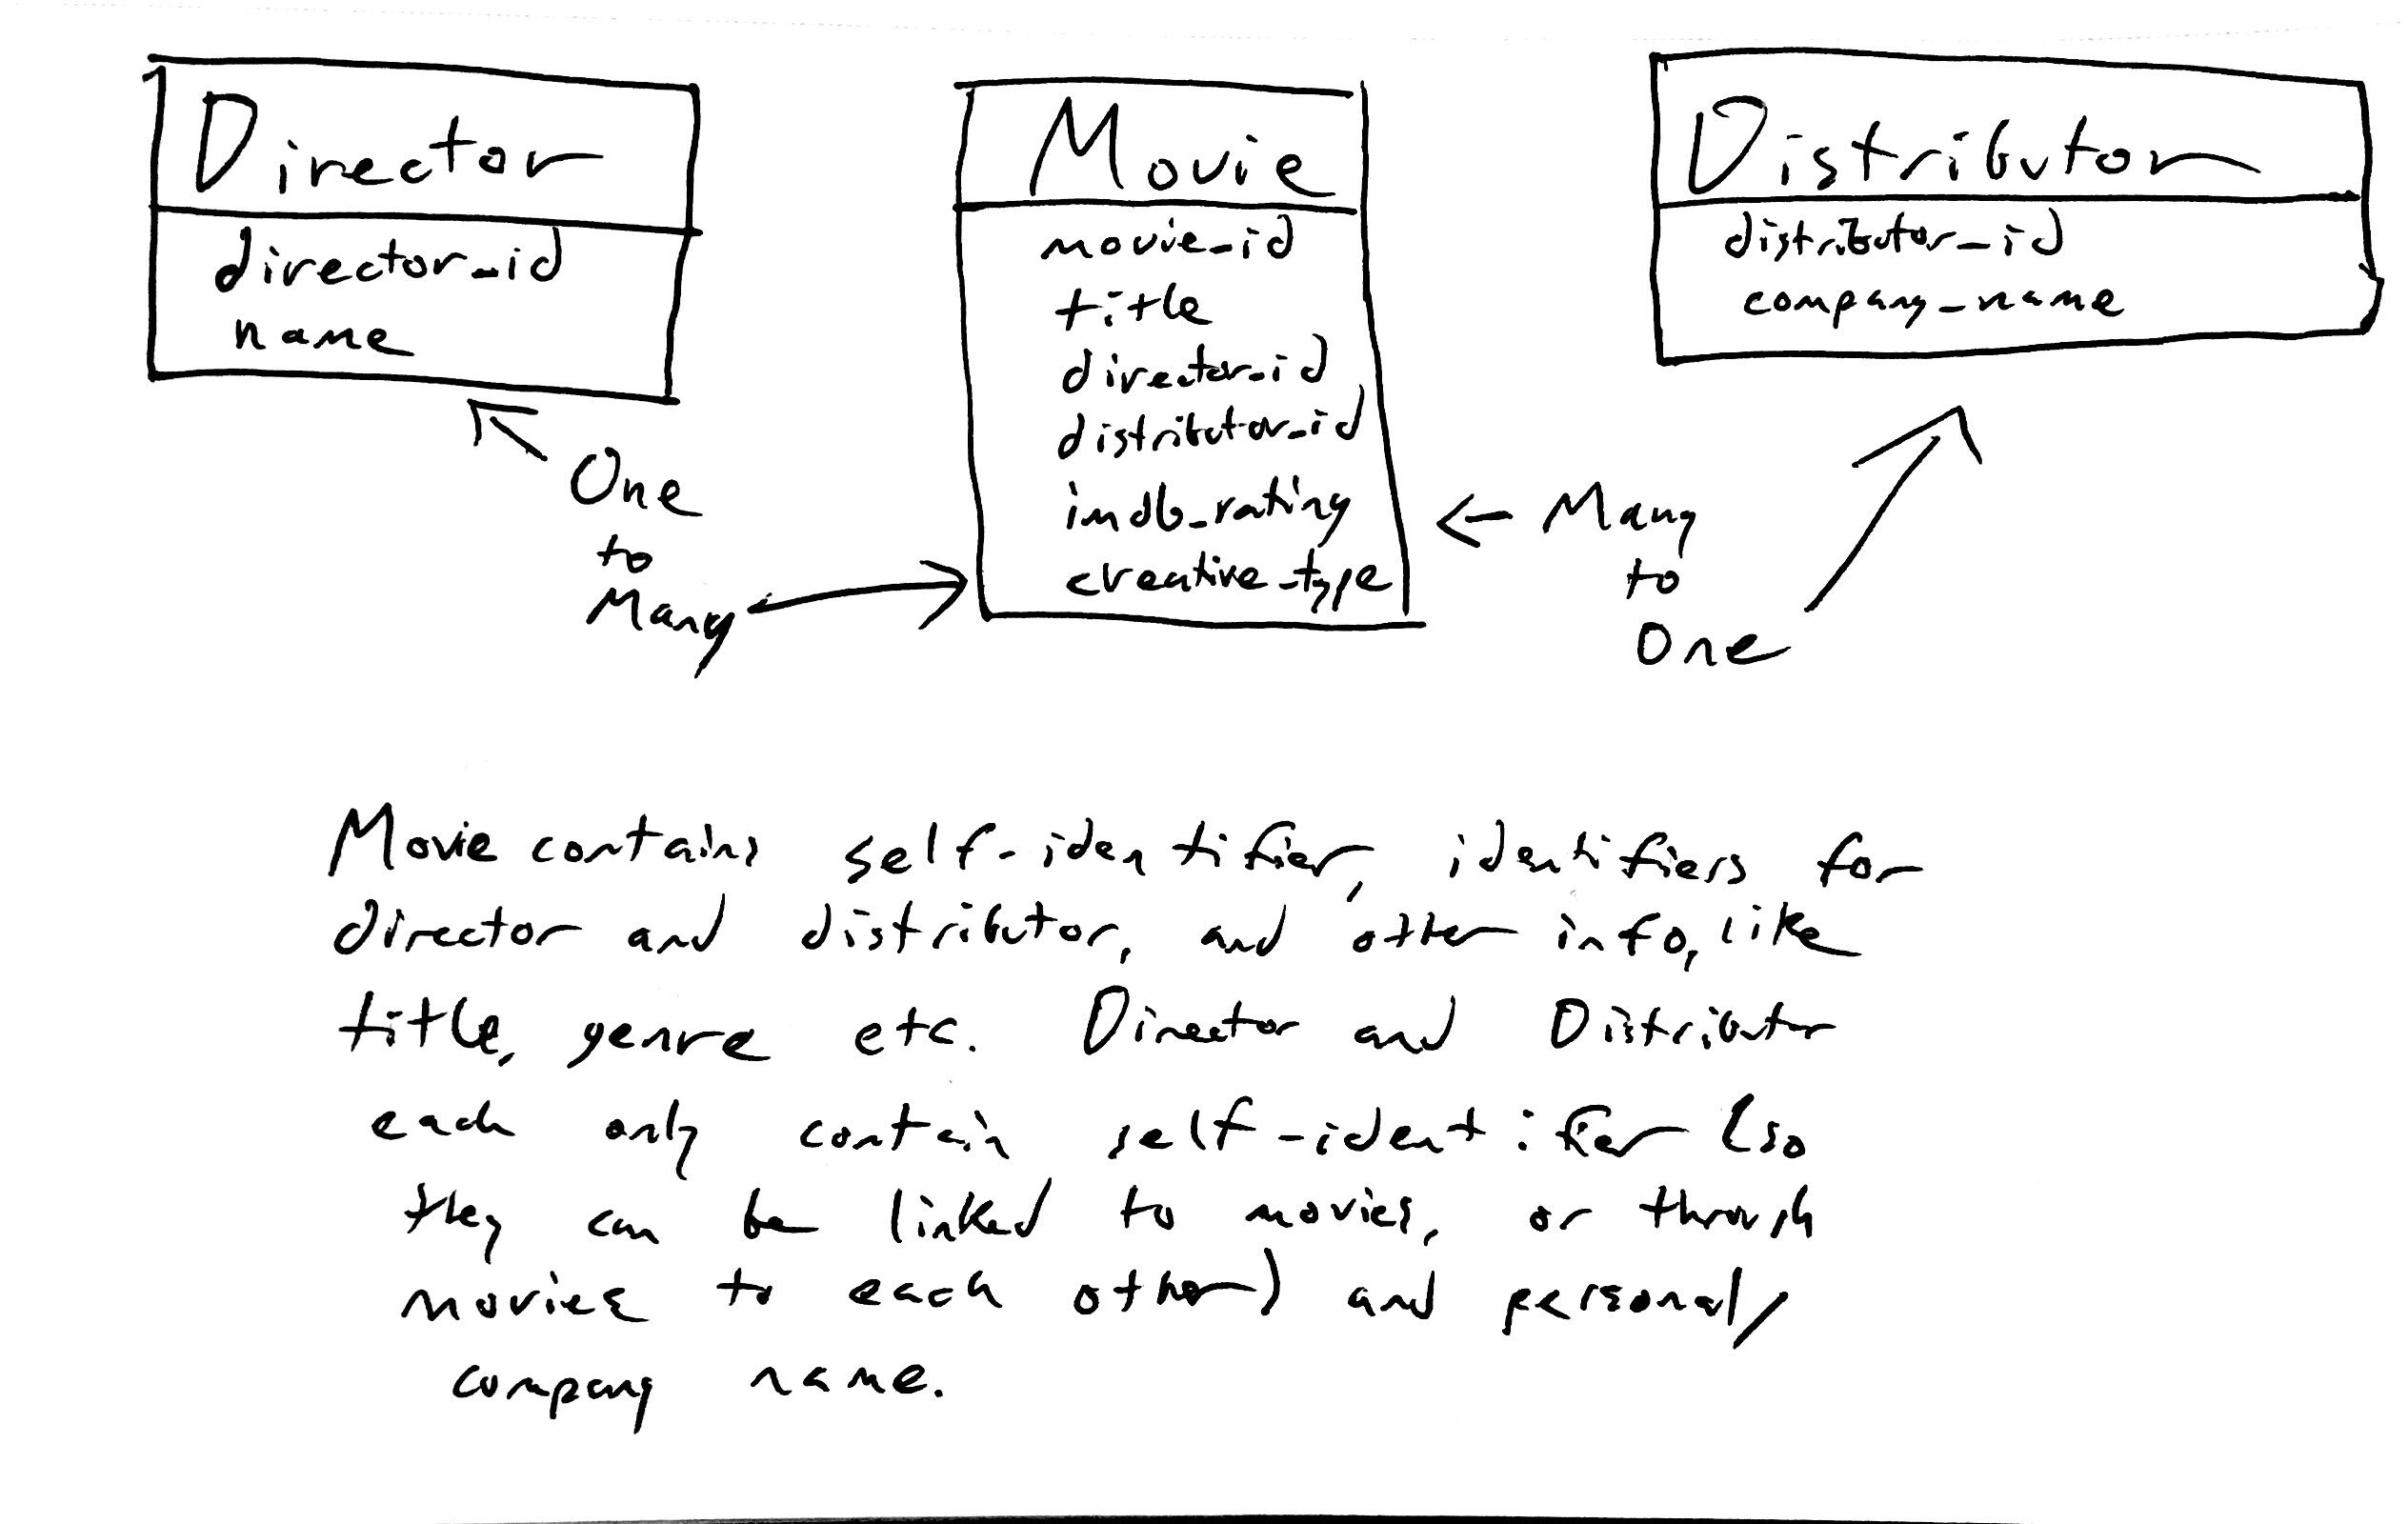 Director
director_id
name
Movie
movie_id
title
director_id
distributor_id
imdb_rating
creative_type
Distributor
distributor_id
company_name
One
to
Many
Many
to
One
Movie contains self-identifier, identifiers for
director and distributor, and other info, like
title, genre etc. Director and Distributor
each only contain self-identifier (so
they can be linked to movies, or through
movies to each other) and personal/
company name.